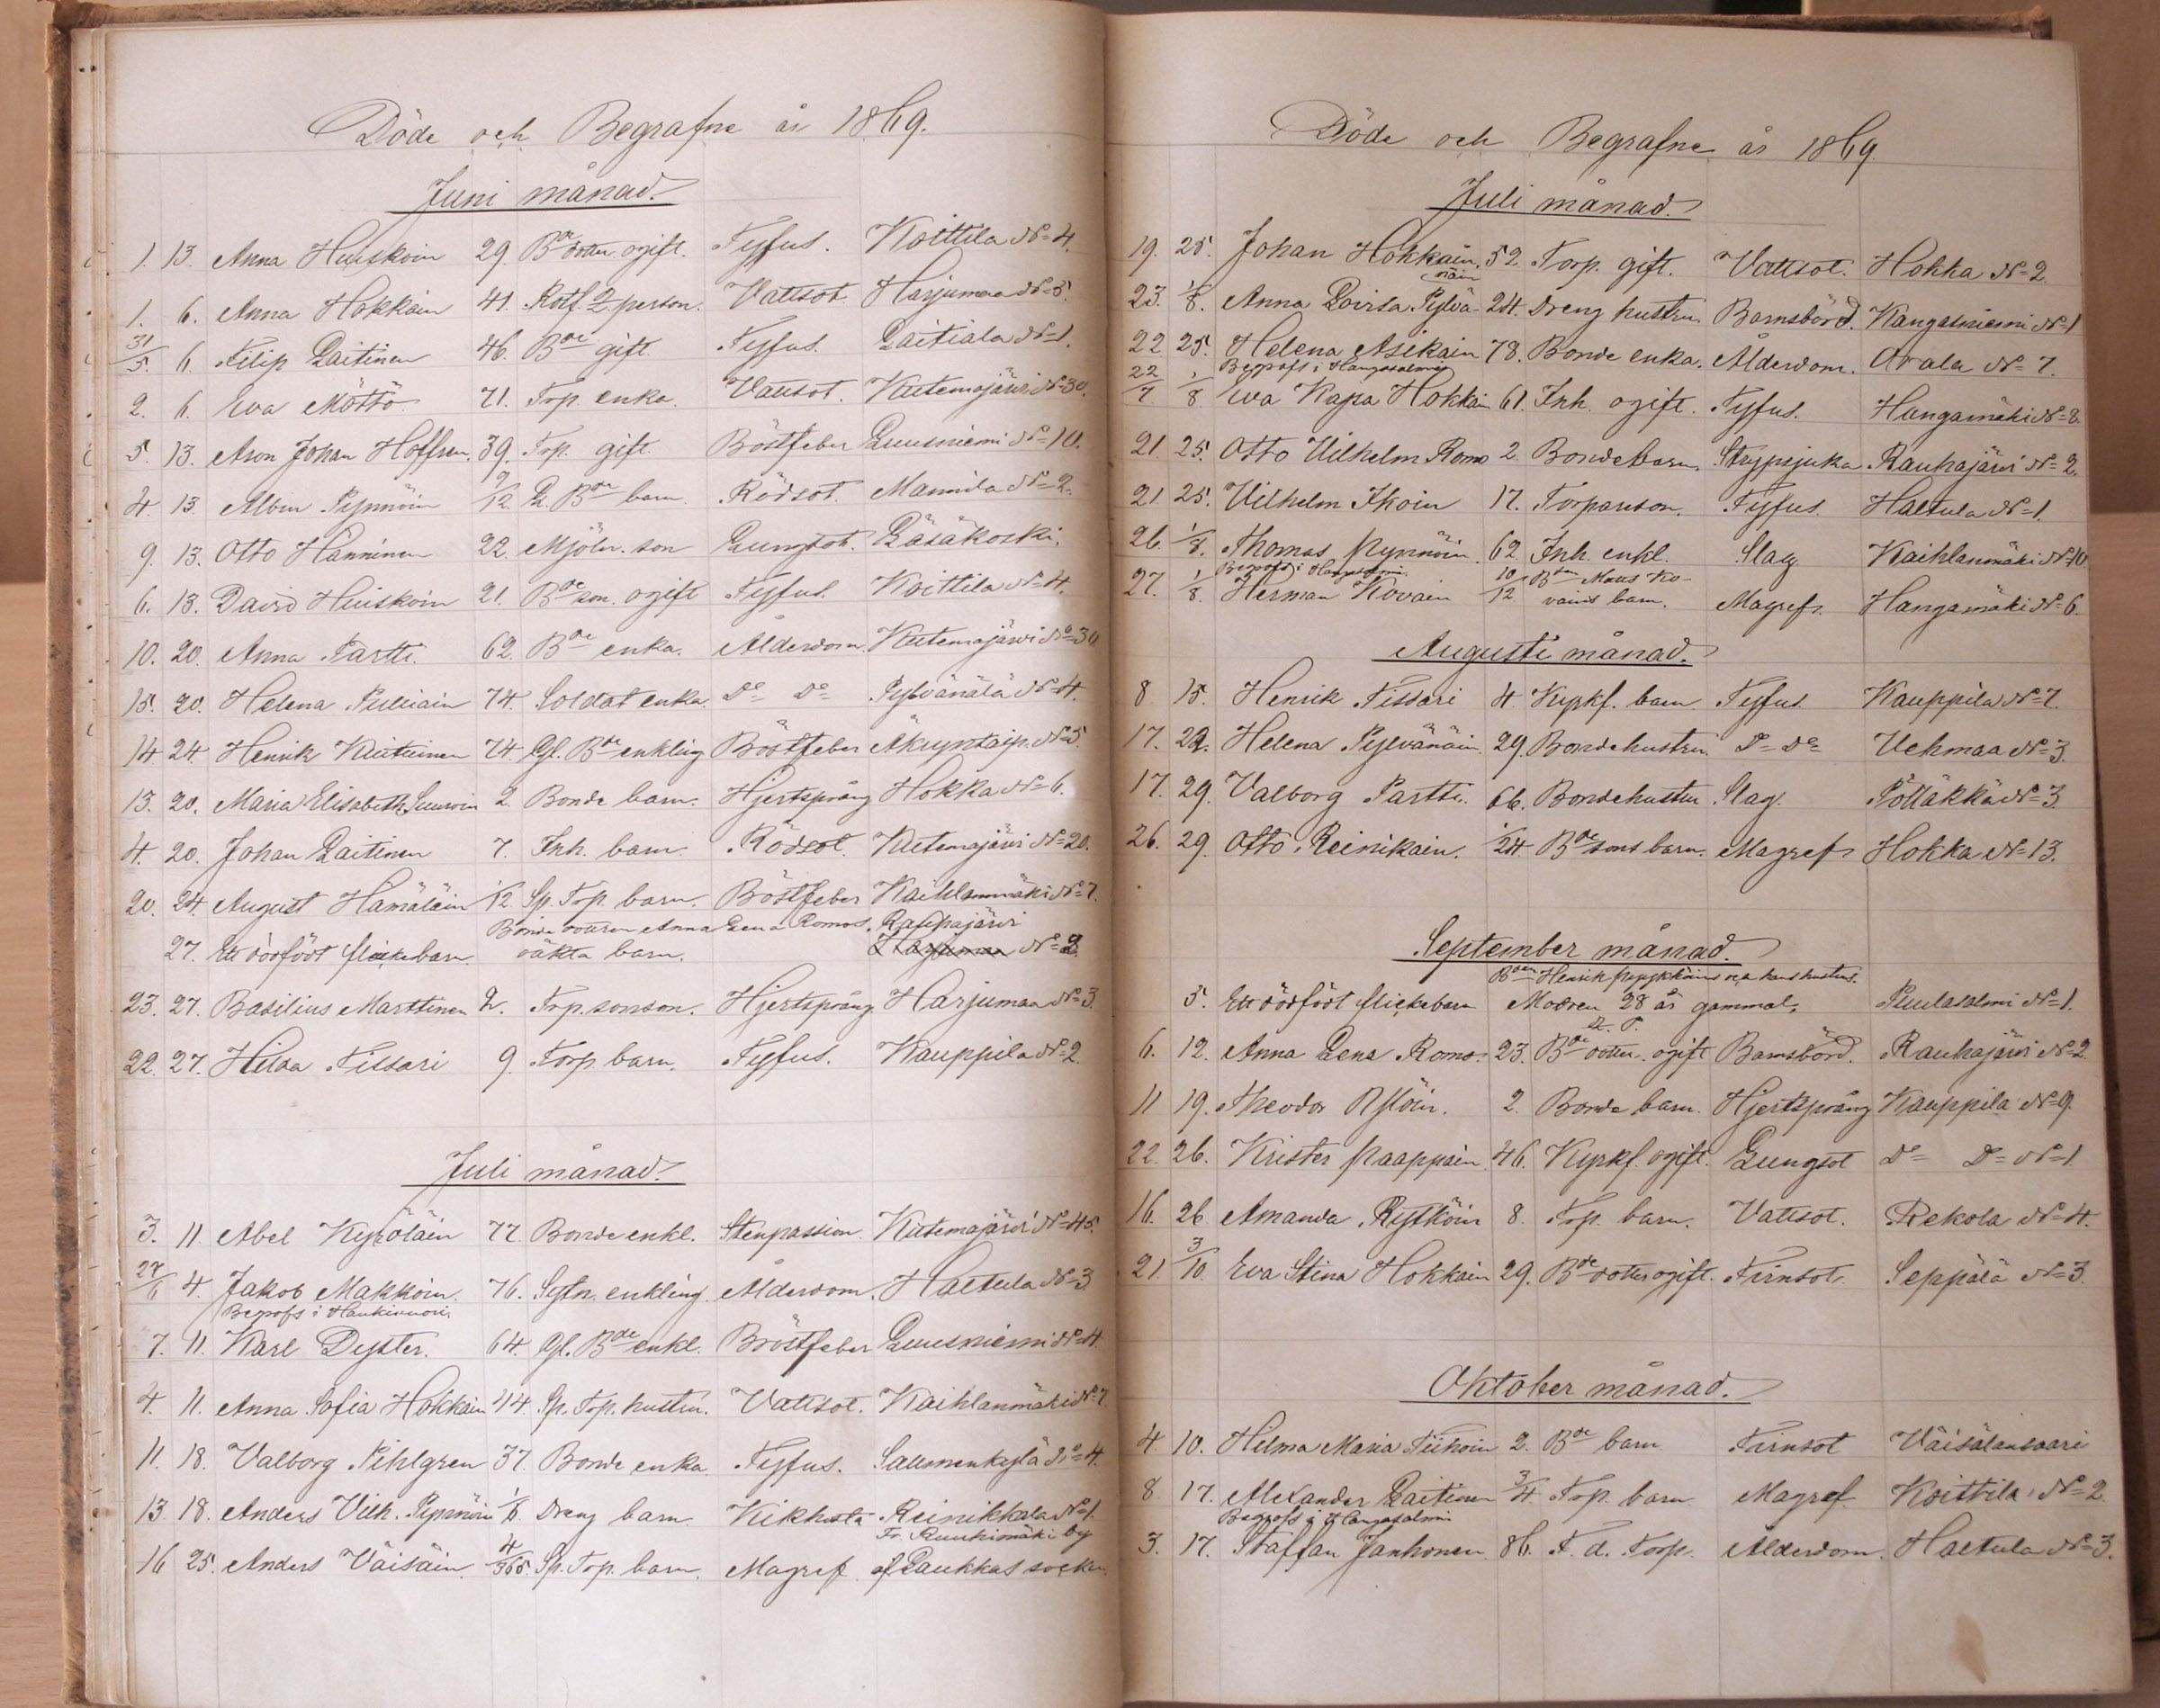 Döde och Begrafne år 1869.
Juni månad.
1. 13. Anna Huiskoin 29. Bde dotter ogift. Tyfus. Koittila No 4.
1. 6. Anna Hokkain 41. Rotf. 2 person. Vattsot. Harjumaa No 5.
31/5. 6. Filip Laitinen 46. Bde gift. Tyfus. Laitiala No 1.
2. 6. Eva Möttö 71. Torp. enka. Vattsot. Kutemajärvi No 30.
5. 13. Aron Johan Hoffren. 39. Torp. gift. Bröstfeber Luusniemi No 10.
4. 13. Albin Pynnöin 9/12. L. Bde barn. Rödsot. Mannila No 2.
9. 13. Otto Hänninen 22. Mjöln. son Lungsot. Läsäkoski.
6. 13. David Huiskoin 21. Bde son. ogift Tyfus. Koittila No 4.
10. 20. Anna Partti. 62. Bde enka. Ålderdom. Kutemajärvi No 30
15. 20. Helena Pulliain 74. Soldat enka. Do Do Pylvänälä No 4.
14 24. Henrik Kiutuinen 74. Gl. Bde enkling Bröstfeber No 5.
13. 20. Maria Elisabeth Suuroin 2. Bonde barn. Hjertsprång Hokka No 6.
4. 20. Johan Laitinen 7. Inh. barn. Rödsot. Kutemajärvi No 20.
20. 24. August Hämäläin 1/12 Sp. Torp. barn. Bröstfeber Kaihlanmäki No 7.
Bonde dottren Anna Lena Romos. Rauhajärvi
27. Ett dödfödt flickebarn oäkta barn. Harjumaa No 2.
23. 27. Basilius Marttinen 2. Torp. sonson. Hjertsprång Harjumaa No 3
22. 27. Hilda Tissari 9. Torp. barn. Tyfus. Kauppila No 2.
Juli månad.
3. 11. Abel Kyröläin 77. Bonde enkl. Stenpassion. Kutemajärvi No 45.
27/6 4. Jakob Makkoin. 76. Sytn. enkling. Ålderdom. Haltula No 3
Begrafs i Haukivuori.
7. 11. Karl Dyster. 64. Gl. Bde enkl. Bröstfeber Luusniemi No 4
4. 11. Anna Sofia Hokkain 44. Sp. Torp. hustru. Vattsot. Kaihlanmäki No 7
11. 18. Valborg Pihlgren 37. Bonde enka. Tyfus. Salmenkylä No 4.
13. 18. Anders Vilh. Pynnöin 1/6. Dreng barn Kikhosta Reinikkala No 1.
Fr. Ruuhimäki by
16 25. Anders Väisäin. 4/365. Sp. Torp. barn. Magref af Laukkas socken.
Döde och Begrafne år 1869.
Juli månad.
19. 25. Johan Hokkain. 52. Torp. gift. Vattsot. Hokka No 2.
näin
23. 1/8. Anna Lovisa Pylvä- 24. Dreng hustru. Barnsbörd. Kangasniemi No 1
22 25. Helena Asikain 78. Bonde enka. Ålderdom. Orala No 7.
Begrafs i Hangasalmi
22/7 1/8 Eva Kapa Hokkain 61. Inh. ogift. Tyfus. Hangamäki No 8.
21 25. Otto Vilhelm Romo 2. Bondebarn. Strypsjuka Rauhajärvi No 2.
21 25. Vilhelm Ikoin 17. Torpareson. Tyfus. Haltula No 1.
26. 1/8. Thomas Nynnöin. 62. Inh. enkl. Slag Kaihlanmäki No 10
Begrafs i Hangasalmi.
27. 1/8. Herman Kovain 10/12 Bden Matts Ko-
vains barn. Magref. Hangamäki No 6.
Augusti månad.
8 15. Henrik Tissari 4. Kyrkf. barn. Tyfus. Kauppila No 7.
17. 22. Helena Pylvänäin. 29. Bondehustru. Do Do Vehmaa No 3.
17. 29. Valborg Partti. 66. Bondehustru Slag. Pölläkkä No 3
26. 29. Otto Reinikain. 1/24 Bde sons barn. Magref Hokka No 13.
September månad.
Bden Henrik och hans hustrus.
5. Ett dödfödt flickebarn Modren 28 år gammal. Puulasalmi No 1.
6. 12. Anna Lena Romo. 23. Bde dotter. ogift Barnsbörd. Rauhajärvi No 2
11 19. Theodor 2. Bonde barn. Hjertsprång Kauppila No 9.
22. 26. Krister Naappain 46. Kyrkf. ogift. Lungsot Do Do No 1
16. 26 Amanda Rytköin 8. Torp. barn. Vattsot. Rekola No 4.
21. 3/10. Eva Stina Hokkain 29. Bde dotter ogift. Tirnsot. Seppälä No 3.
Oktober månad.
4. 10. Hilma Maria Tiihoin 2. Bde barn Tirnsot Väisälänsaari
8 17. Alexander Laitinen 3/4 Torp. barn Magref Koittila No 2
Begrafs i Hangasalmi
3. 17. Staffan Janhonen. 86. F. d. Torp. Ålderdom. Haltula No 3.